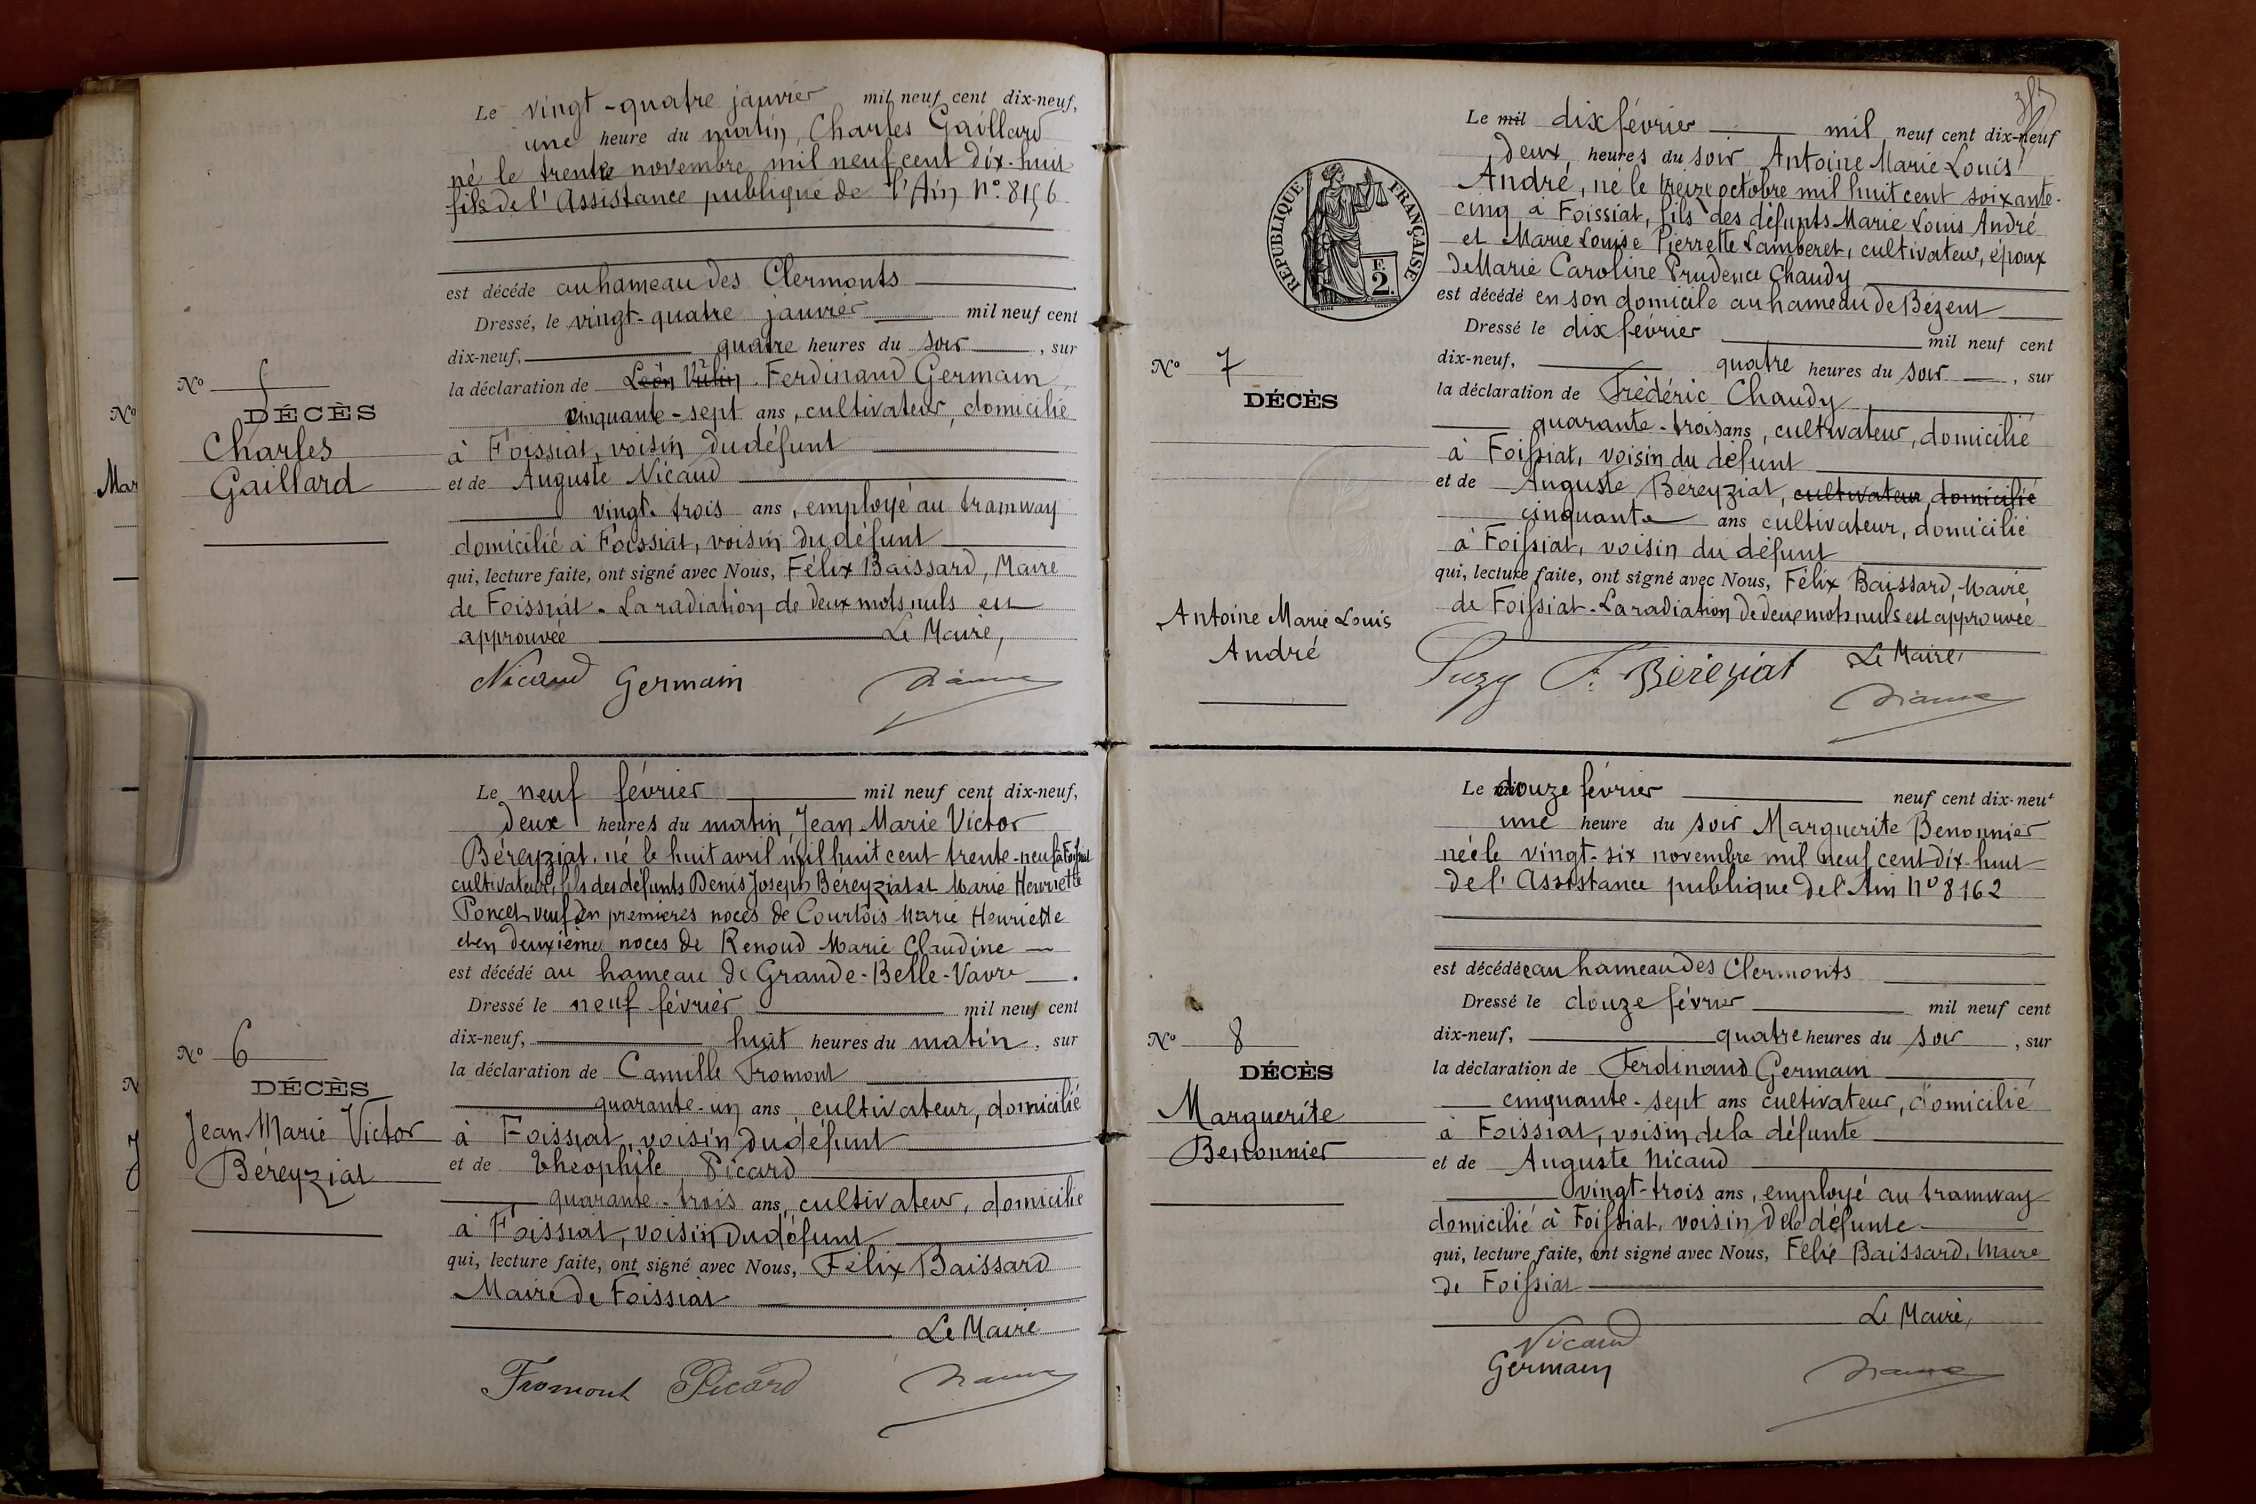 Le vingt-quatre janvier mil neuf cent dix-neuf,
une heure du matin, Charles Gaillard
né le trente novembre mil neuf cent dix-huit
fils de l'Assistance publique de l'Ain No. 8156
est décédé au hameau des Clermonts
Dressé, le vingt-quatre janvier mil neuf cent
dix-neuf, quatre heures du soir, sur
la déclaration de Léon Vulin. Ferdinand Germain
cinquante-sept ans, cultivateur, domicilié
à Foissiat, voisin du défunt
et de Auguste Nicaud
vingt-trois ans, employé au tramway
domicilié à Foissiat, voisin du défunt
qui, lecture faite, ont signé avec Nous, Félix Baissard, Maire
de Foissiat. La radiation de deux mots nuls est
approuvée Le Maire,
Nicaud Germain
No
No 5
DÉCÈS
Charles
Gaillard
Mar
Le neuf février mil neuf cent dix-neuf,
deux heures du matin, Jean Marie Victor
Béreyziat, né le huit avril mil huit cent trente-neuf à Foissiat
cultivateur, fils des défunts Denis Joseph Béreyziat et Marie Henriette
Poncet, veuf en premières noces de Courtois Marie Henriette
et en deuxième noces de Renoud Marie Claudine
est décédé au hameau de Grande-Belle-Vavre.
Dressé le neuf février mil neuf cent
dix-neuf, huit heures du matin, sur
la déclaration de Camille Fromont
quarante-un ans, cultivateur, domicilié
à Foissiat, voisin du défunt
et de Théophile Picard
quarante-trois ans, cultivateur, domicilié
à Foissiat, voisin du défunt
qui, lecture faite, ont signé avec Nous, Félix Baissard
Maire de Foissiat
Le Maire
Fromont Picard
No 6
DÉCÈS
Jean Marie Victor
Béreyziat
N
J
RÉPUBLIQUE FRANÇAISE
F.
2.
Le mil dix février mil neuf cent dix-neuf
deux heures du soir Antoine Marie Louis
André, né le treize octobre mil huit cent soixante-
cinq à Foissiat, fils des défunts Marie Louis André
et Marie Louise Pierrette Lamberet, cultivateur, époux
de Marie Caroline Prudence Chaudy
est décédé en son domicile au hameau de Bézent
Dressé le dix février mil neuf cent
dix-neuf, quatre heures du soir, sur
la déclaration de Frédéric Chaudy
quarante-trois ans, cultivateur, domicilié
à Foissiat, voisin du défunt
et de Auguste Béreyziat, cultivateur, domicilié
cinquante ans cultivateur, domicilié
à Foissiat, voisin du défunt
qui, lecture faite, ont signé avec Nous, Félix Baissard, Maire
de Foissiat. La radiation de deux mots nuls est approuvée
Le Maire,
Béréziat
No 7
DÉCÈS
Antoine Marie Louis
André
Le douze février neuf cent dix-neuf
une heure du soir Marguerite Benonnier
née le vingt-six novembre mil neuf cent dix-huit
de l'Assistance publique de l'Ain No 8162
est décédée au hameau des Clermonts
Dressé le douze février mil neuf cent
dix-neuf, quatre heures du soir, sur
la déclaration de Ferdinand Germain
cinquante-sept ans cultivateur, domicilié
à Foissiat, voisin de la défunte
et de Auguste Nicaud
vingt-trois ans, employé au tramway
domicilié à Foissiat, voisin de la défunte
qui, lecture faite, ont signé avec Nous, Félix Baissard, Maire
de Foissiat
Le Maire,
Nicaud
Germain
No 8
DÉCÈS
Marguerite
Benonnier